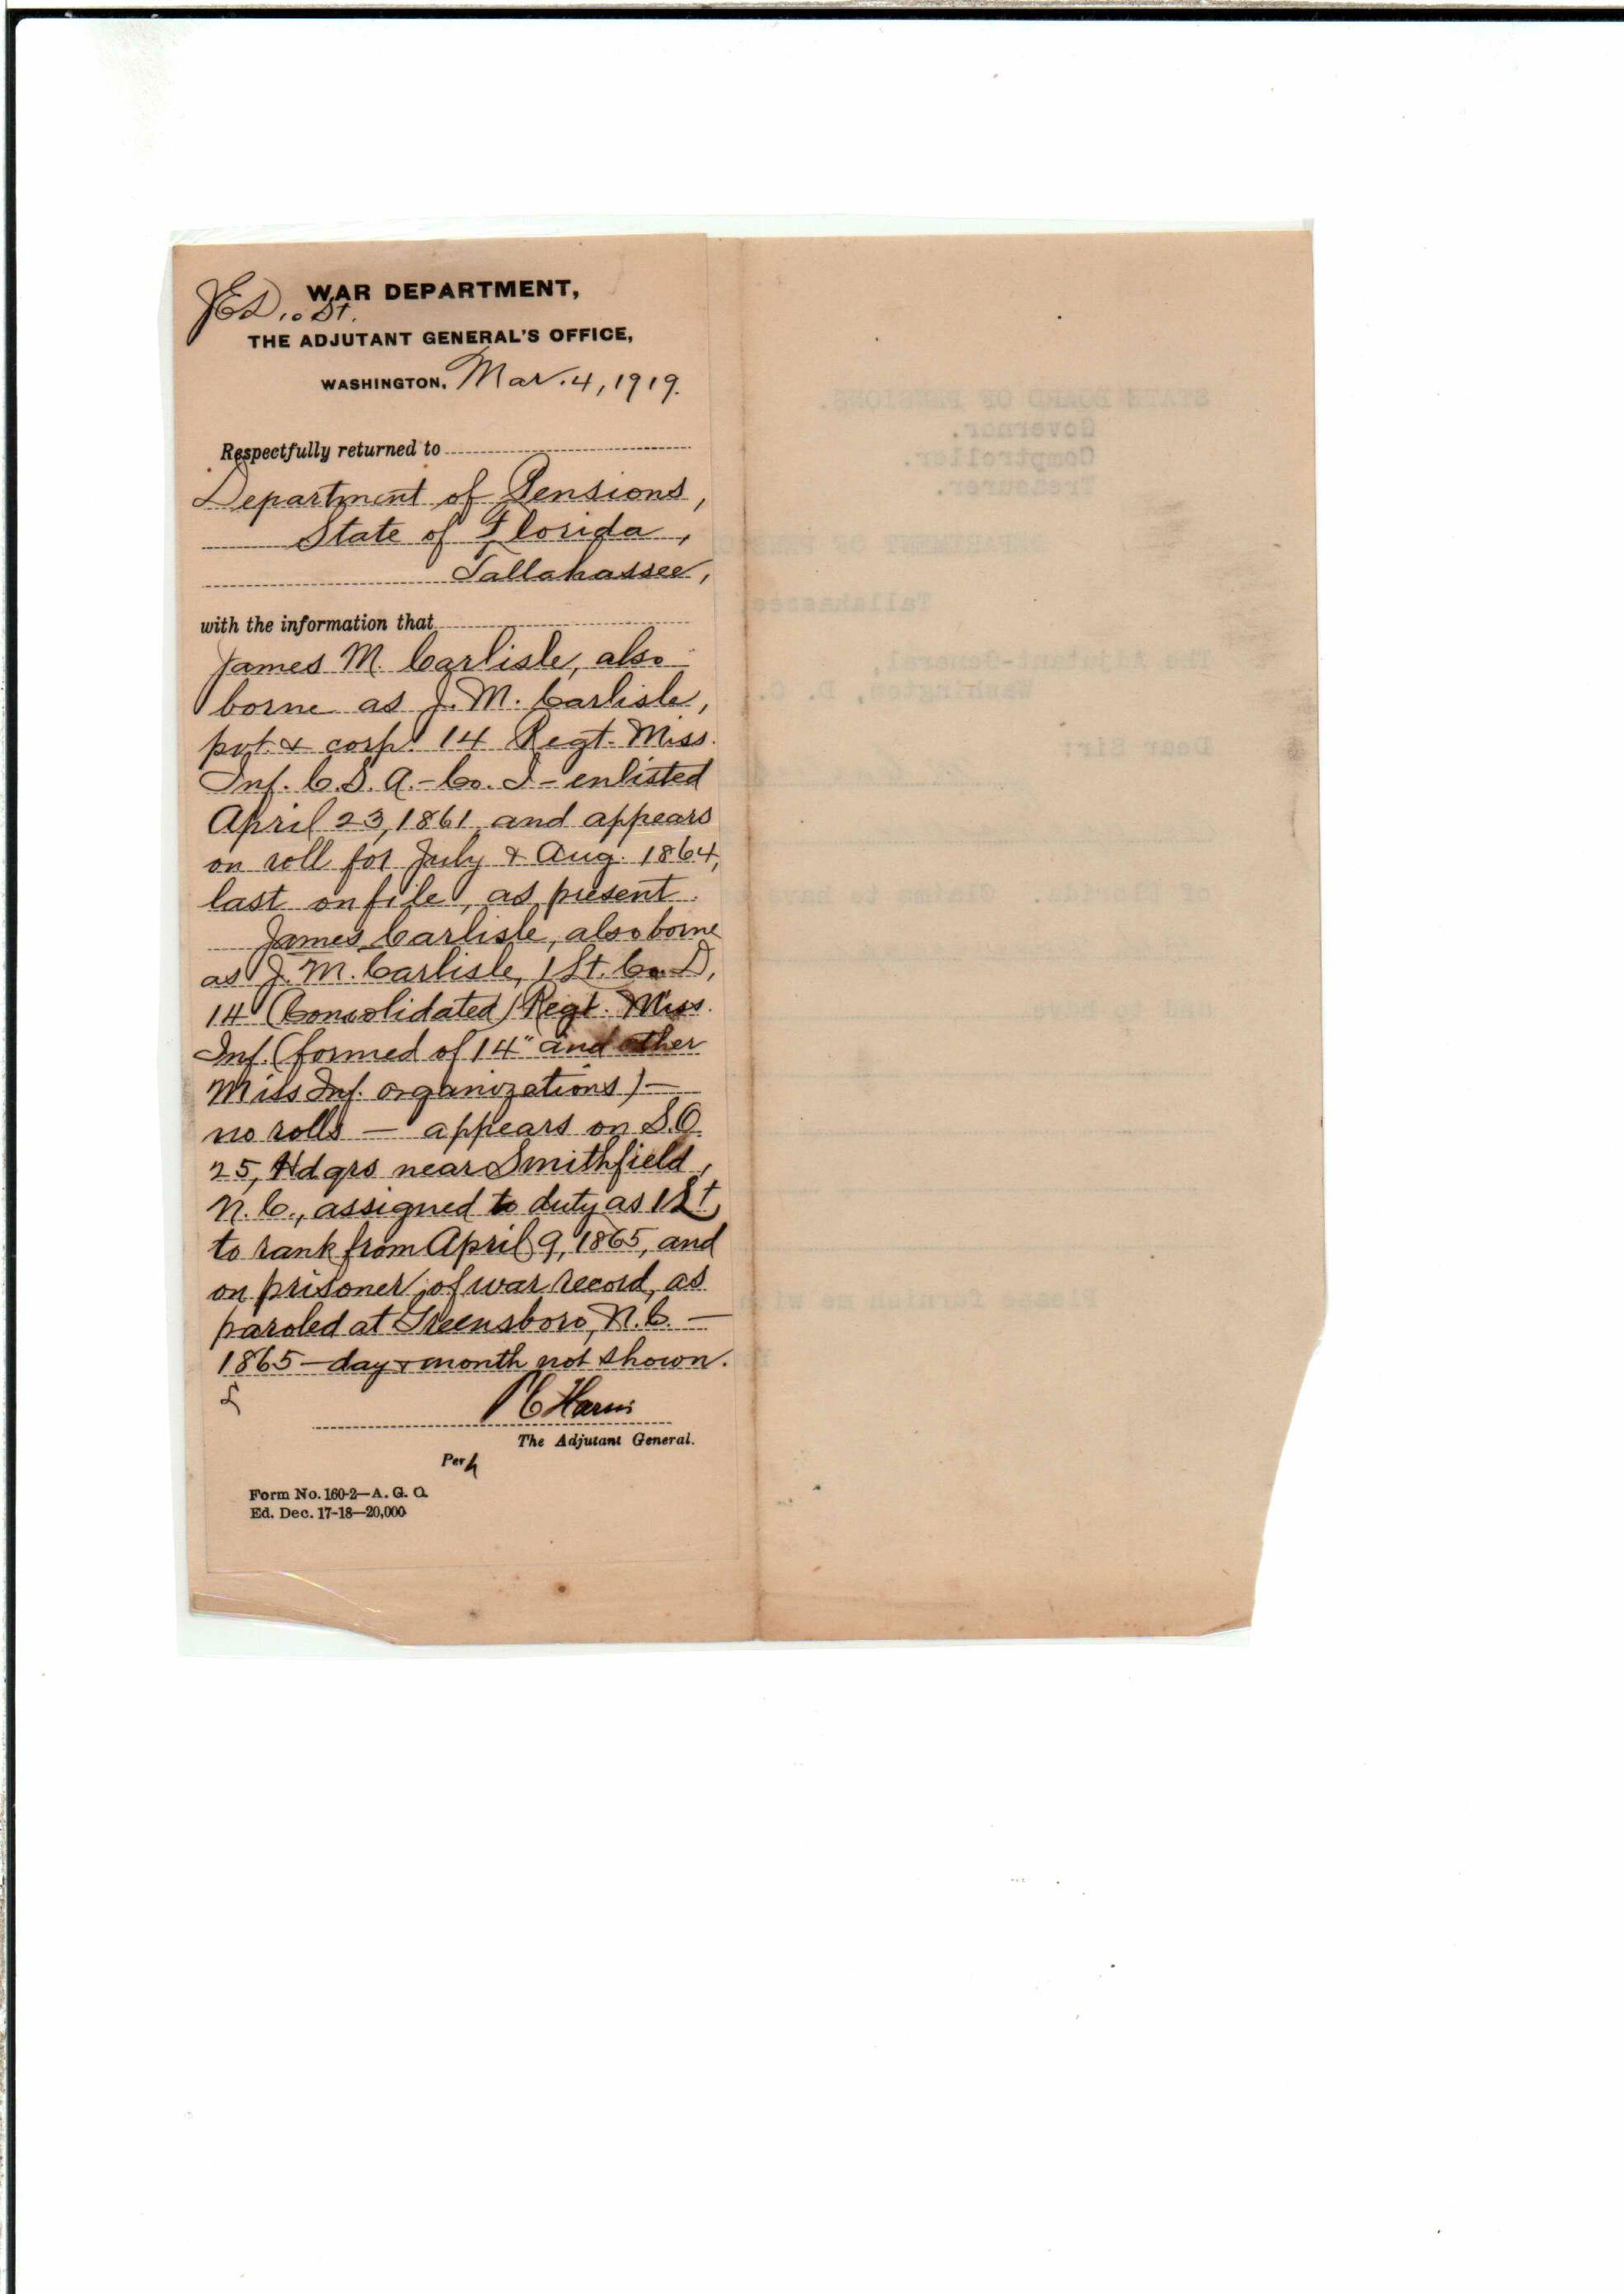 WAR DEPARTMENT,
THE ADJUTANT GENERAL'S OFFICE,
WASHINGTON, Mar. 4, 1919.
Respectfully returned to
Department of Pensions,
State of Florida,
Tallahassee,
with the information that
James M. Carlisle, also
borne as J. M. Carlisle,
pvt. & corp. 14 Regt. Miss.
Inf. C.S.A. - Co. I - enlisted
April 23, 1861, and appears
on roll for July & Aug. 1864,
last on file, as present.
James Carlisle, also borne
as J. M. Carlisle, 1 Lt. Co. D,
14 (Consolidated) Regt. Miss.
Inf. (formed of 14" and other
Miss Inf. organizations) —
no rolls — appears on S.O.
25, Hdqrs near Smithfield,
N.C., assigned to duty as 1 Lt
to rank from April 9, 1865, and
on prisoner of war record, as
paroled at Greensboro, N.C. —
1865 — day & month not shown.
P C Harris
The Adjutant General.
Per
Form No. 160-2—A. G. O.
Ed. Dec. 17-18—20,000
STATE BOARD OF PENSIONS.
Governor.
Comptroller.
Treasurer.
DEPARTMENT OF
Tallahassee,
The Adjutant-General,
Washington, D. C.
Dear Sir:
of Florida. Claims to have
and to have
Please furnish me